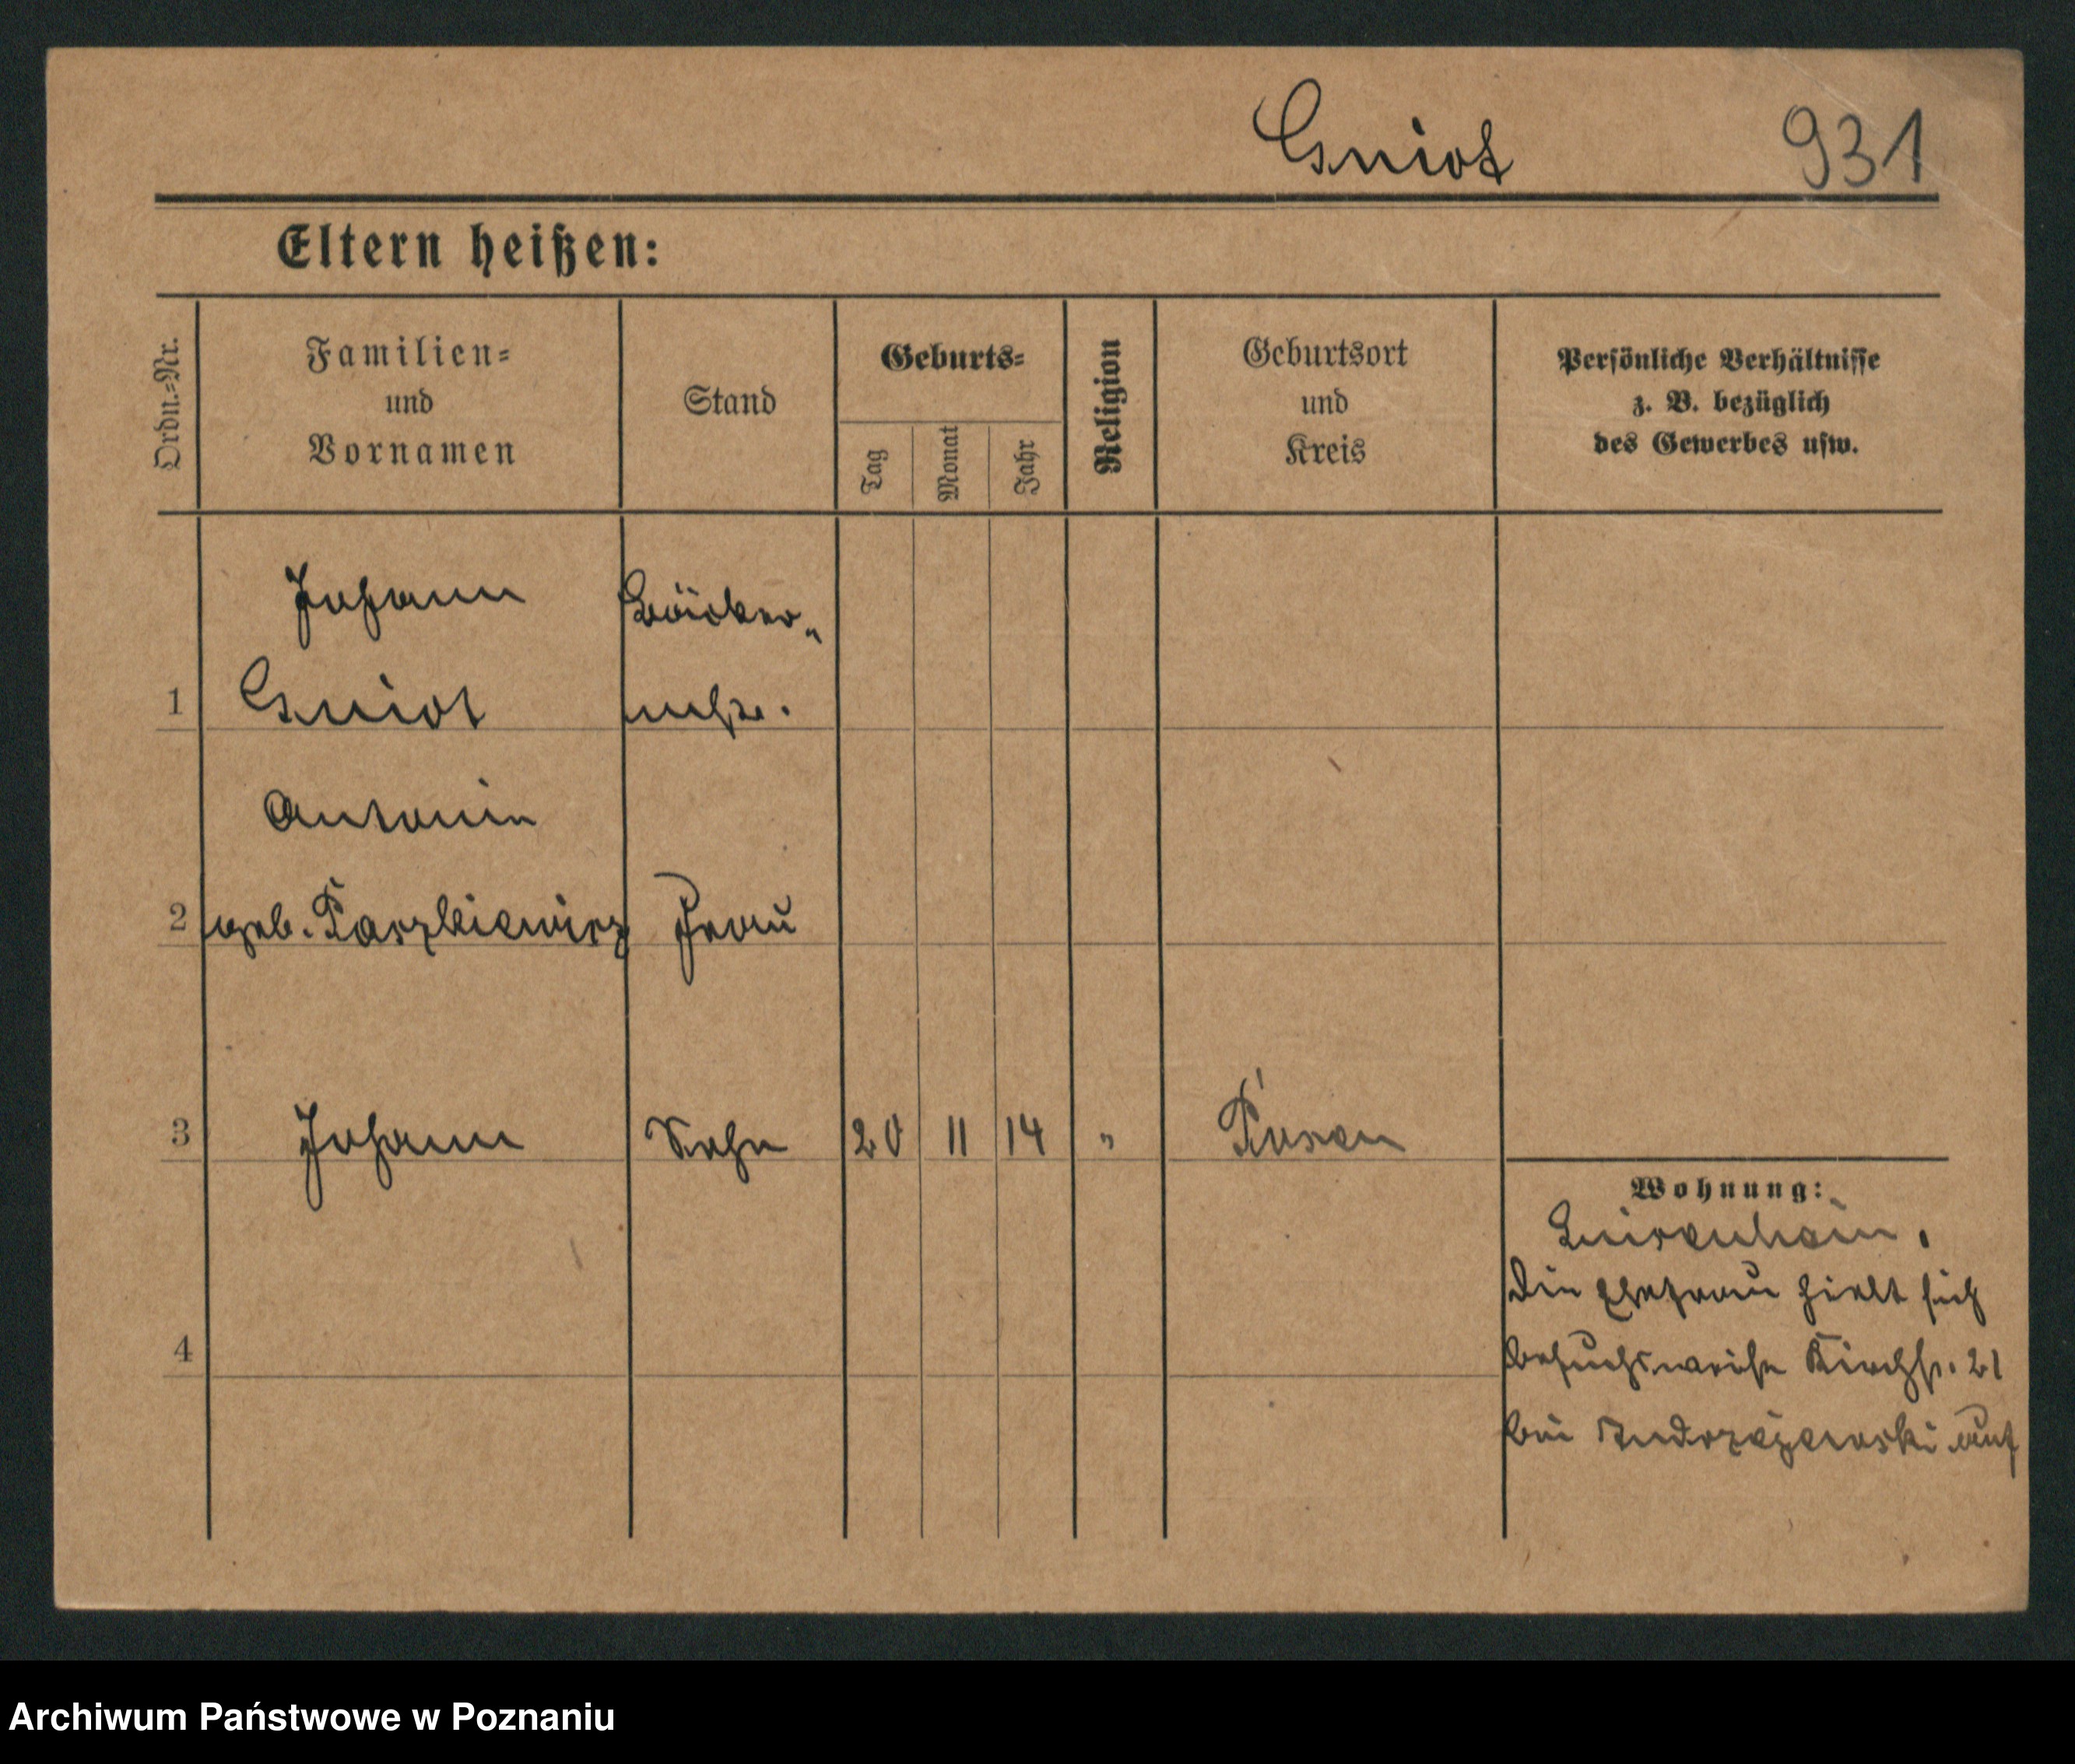 Gniot 931
Eltern heißen:
Ordn.-Nr.
Familien-
und
Vornamen
Stand
Geburts-
Tag
Monat
Jahr
Religion
Geburtsort
und
Kreis
Persönliche Verhältnisse
z. B. bezüglich
des Gewerbes usw.
Johann Bäcker-
1 Gniot mstr.
Antonie
2 geb. Paszkiewicz Frau
3 Johann Sohn 20 11 14 " Posen
Wohnung:
Luisenhain.
Die Ehefrau hielt sich
4
besuchsweise Kirchstr. 21
bei auf
Archiwum Państwowe w Poznaniu